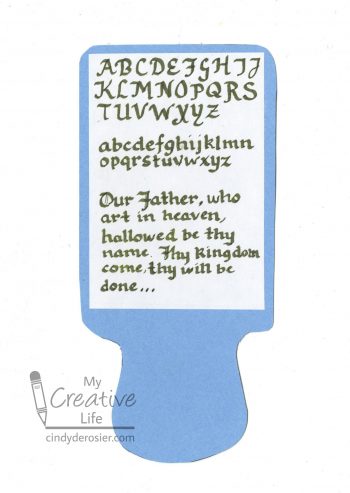 ABCDEFGHIJ
KLMNOPQRS
TUVWXYZ
abcdefghijklmn
opqrstuvwxyz
Our Father, who
art in heaven,
hallowed be thy
name. Thy Kingdom
come, thy will be
done...
My
Creative
Life
cindyderosier.com